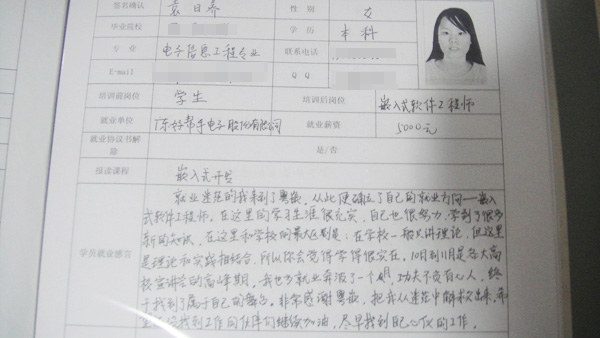 签名确认 袁日乔 性 别 女
毕业院校 学 历 本科
专 业 电子信息工程专业 联系电话
E-mail Q Q
培训前岗位 学生 培训后岗位 嵌入式软件工程师
就业单位 广东好帮手电子股份有限公司 就业薪资 5000元
就业协议书解除 是/否
报读课程 嵌入式开发
学员就业感言
就业迷茫的我来到了粤嵌,从此便确立了自己的就业方向——嵌入
式软件工程师。在这里的学习生涯很充实,自己也很努力,学到了很多
新的知识。在这里和学校的最大区别是:在学校一般只讲理论,但这里
是理论和实践相结合。所以你会觉得学得很实在。10月到11月是各大高
校宣讲会的高峰期,我也为就业奔波了一个月,功夫不负有心人,终
于找到了属于自己的舞台。非常感谢粤嵌,把我从迷茫中解救出来。希
找到工作的伙伴们继续加油,尽早找到自己心仪的工作。